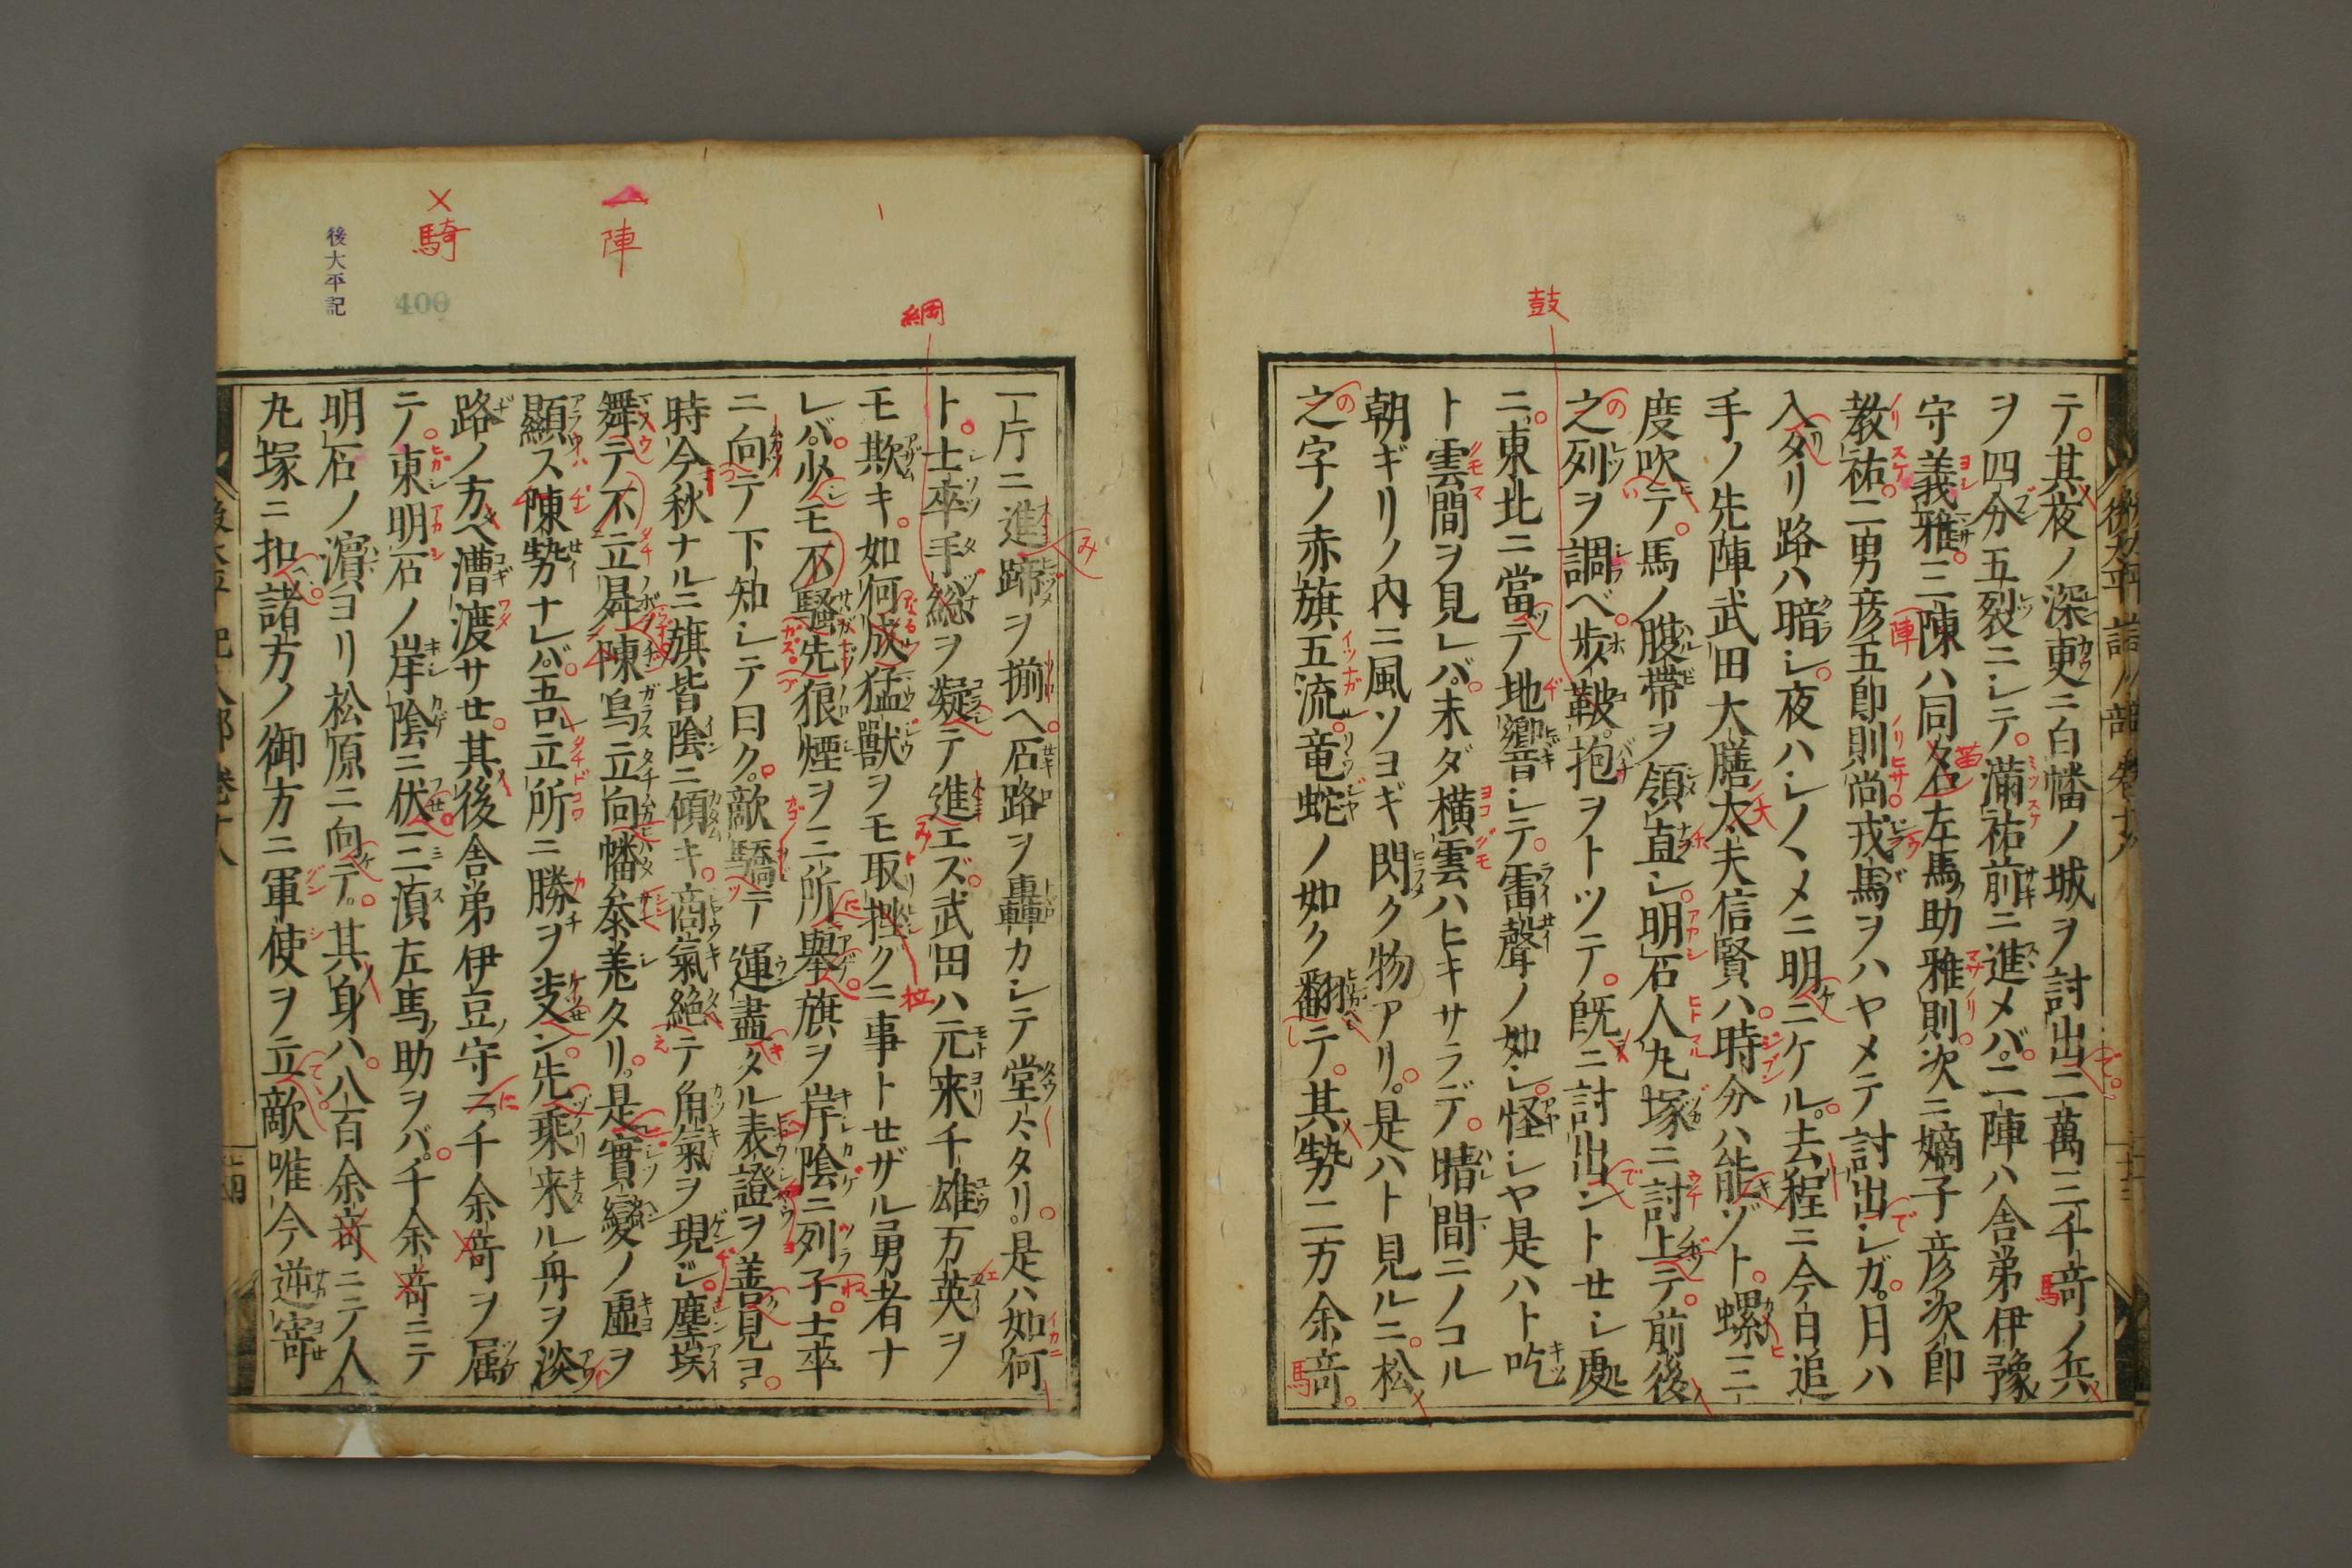 テ其夜ノ深更ニ白幡ノ城ヲ討出二萬三千竒ノ兵
ヲ四分五裂ニシテ滿祐前ニ進メバ二陣ハ舎弟伊豫
守義雅三陳ハ同名左馬助雅則次ニ嫡子彦次郎
教祐二男彦五郎則尚戎馬ヲハヤメテ討出シガ月ハ
入タリ路ハ暗シ夜ハシノヽメニ明ニケル去程ニ今白追
手ノ先陣武田大膳太夫信賢ハ時分ハ能ゾト螺三
度吹テ馬ノ腹帯ヲ領直シ明石人丸塚ニ討上テ前後
之列ヲ調ベ歩鞁抱ヲトツテ既ニ討出ントセシ處
ニ東北ニ當テ地響シテ雷聲ノ如シ怪シヤ是ハト吃
ト雲間ヲ見レバ未ダ横雲ハヒキサラデ晴間ニノコル
朝ギリノ内ニ風ソヨギ閃ク物アリ是ハト見ルニ松
之字ノ赤旗五流竜蛇ノ如ク翻テ其勢二万余竒
鼓
一片ニ進蹄ヲ揃ヘ石路ヲ轟カシテ堂々タリ是ハ如何
ト士卒手総ヲ凝テ進エズ武田ハ元来千雄万英ヲ
モ欺キ如何成猛獣ヲモ取挫クニ事トセザル勇者ナ
レバ少モ不騒先狼煙ヲ二所舉旗ヲ岸陰ニ列子士卒
ニ向テ下知シテ曰ク敵驕テ運盡タル表證ヲ善見ヨ
時今秋ナルニ旗皆陰ニ傾キ商氣絶テ角氣ヲ現ジ塵埃
舞テ不立曻陳烏立向幡叅差タリ是實變ノ虚ヲ
顯ス陳勢ナレバ吾立所ニ勝ヲ支ン先乗来ル舟ヲ淡
路ノ方ヘ漕渡サセ其後舎弟伊豆守ニ千余竒ヲ属
テ東明石ノ岸陰ニ伏三湏左馬助ヲバ千余竒ニテ
明石ノ濵ヨリ松原ニ向テ其身ハ八百余竒ニテ人
丸塚ニ扣諸方ノ御方ニ軍使ヲ立敵唯今逆寄
綱
陣
騎
後大平記
400